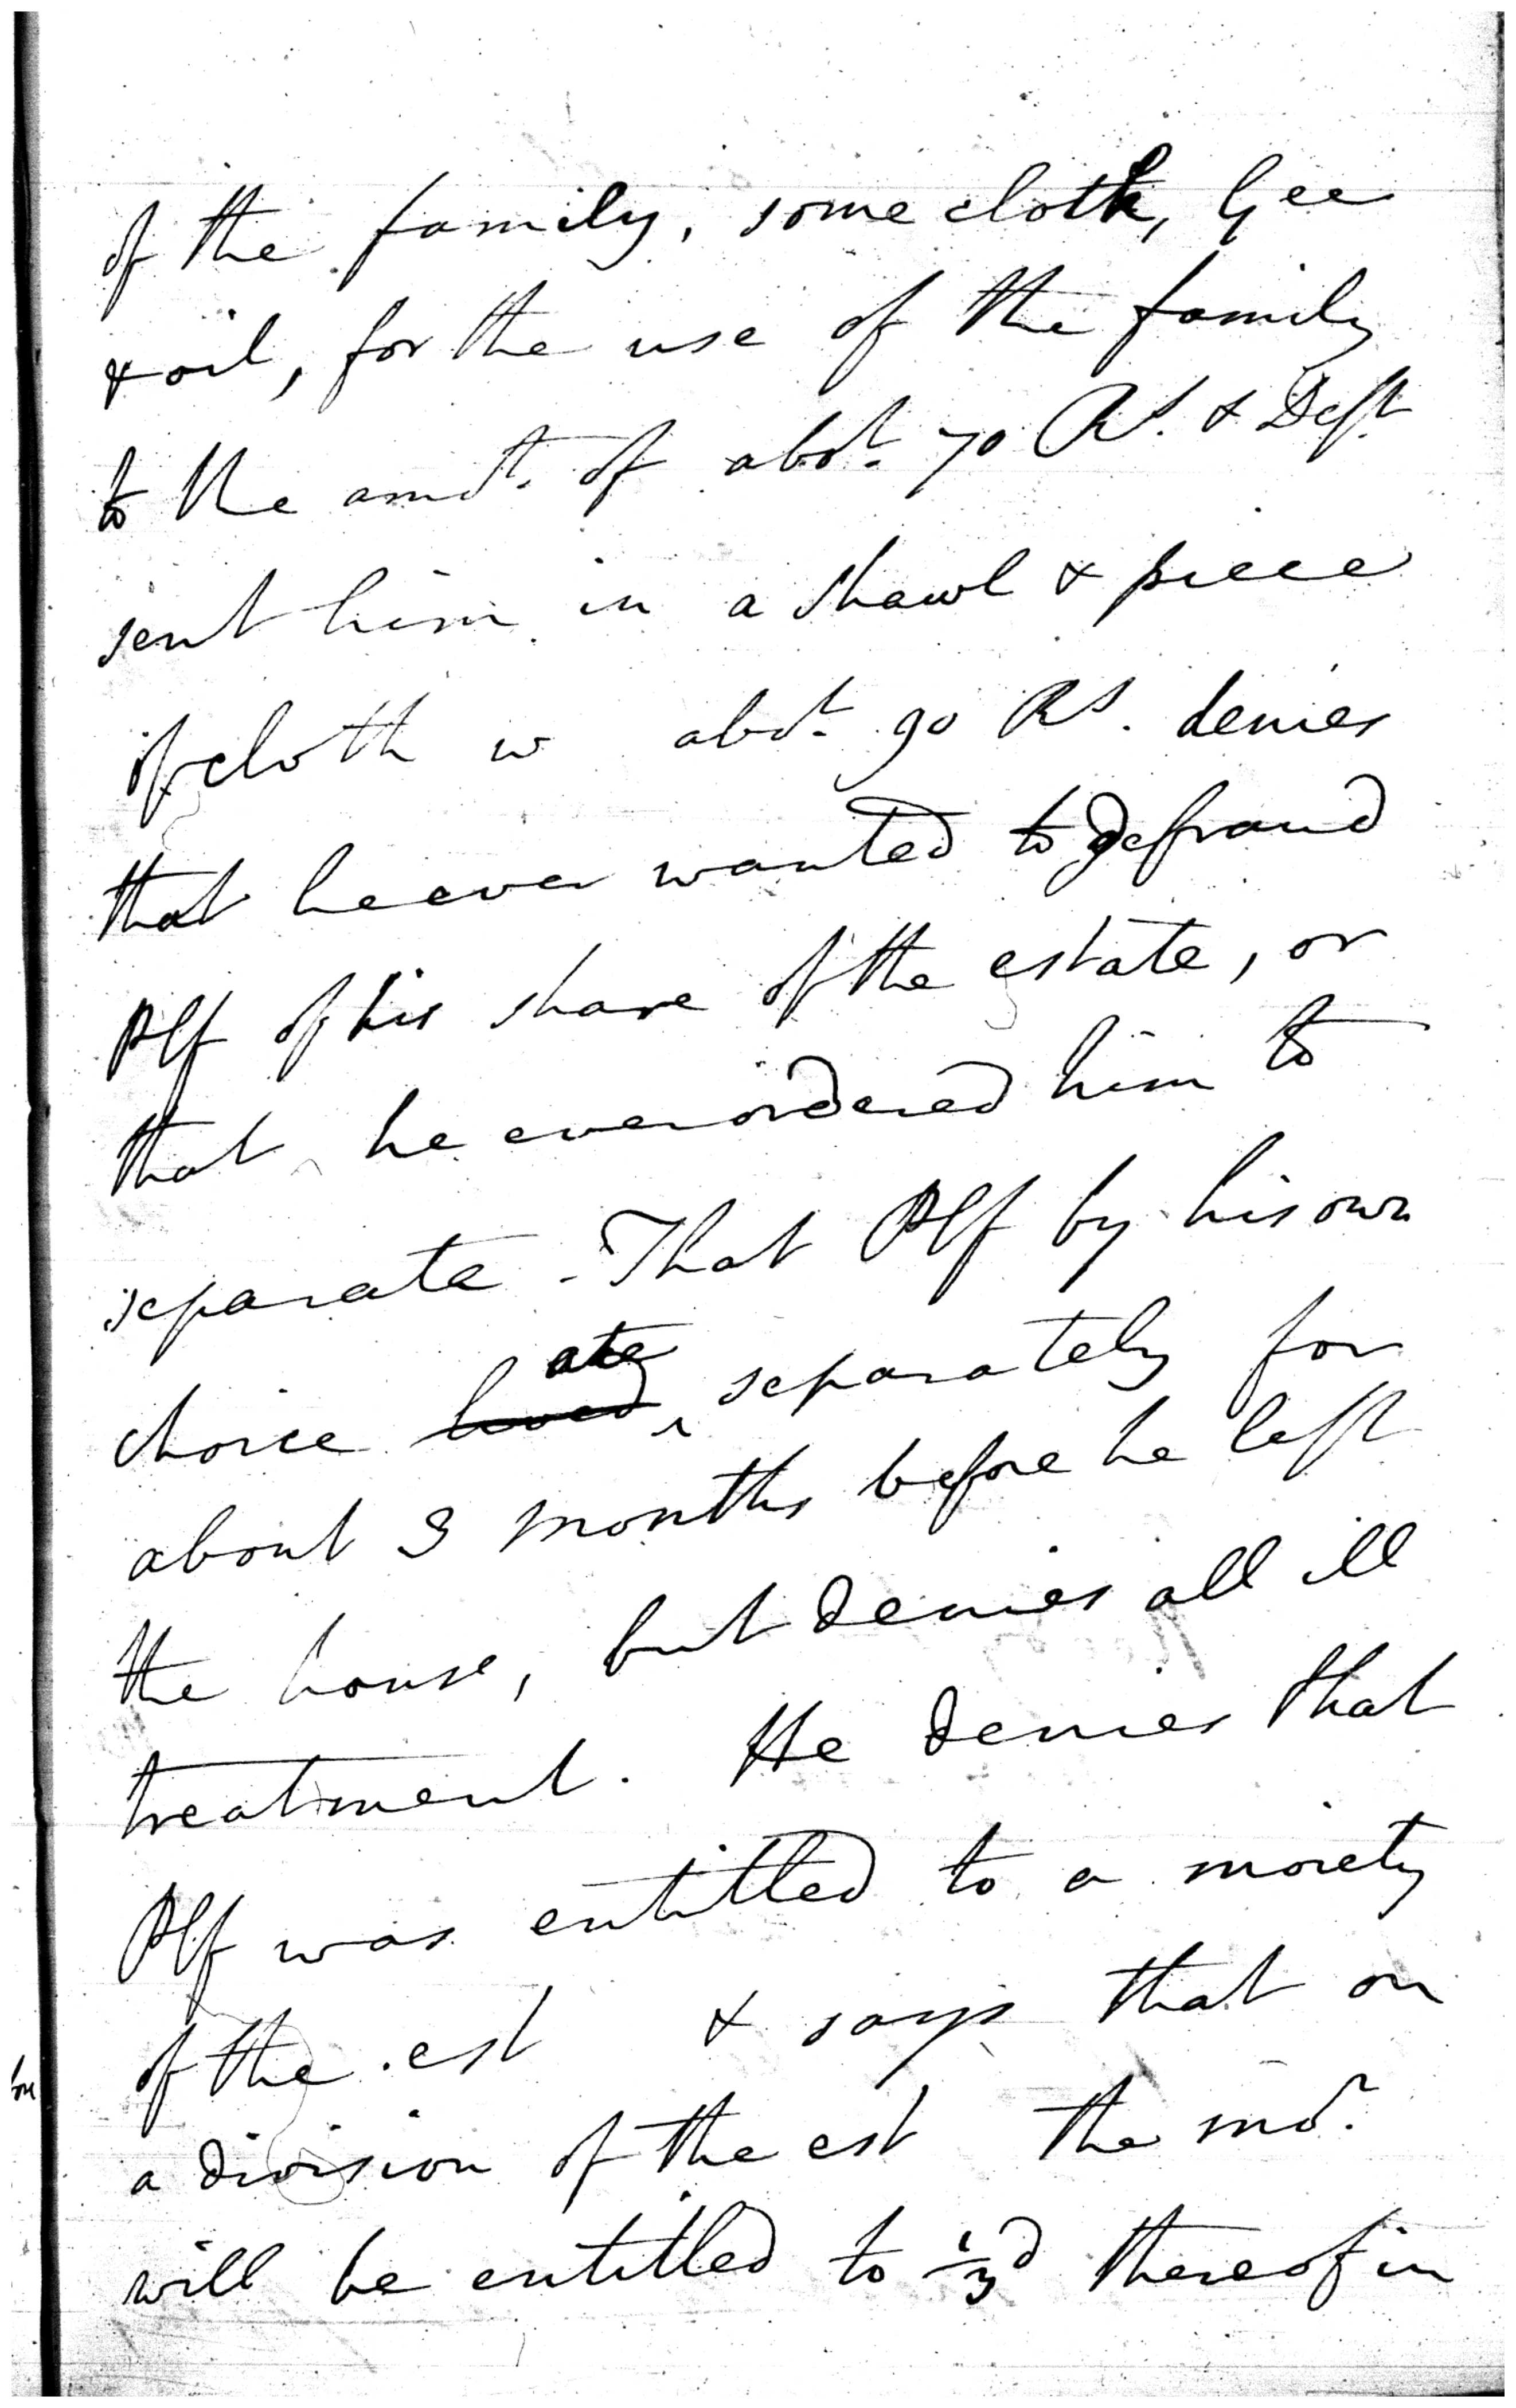 of the family, some cloth, Gee
& oil, for the use of the family
to the amot. of abot. 70 Rs. & Deft
sent him in a shawl & piece
of cloth w abot. 90 Rs. denies
that he ever wanted to defraud
Plf of his share of the estate, or
that he ever ordered him to
separate - That Plf by his own
choice lived ate separately for
about 3 months before he left
the house, but denies all ill
treatment. He denies that
Plf was entitled to a moiety
of the est & says that on
a division of the est the mor.
will be entitled to 1/3d thereof in